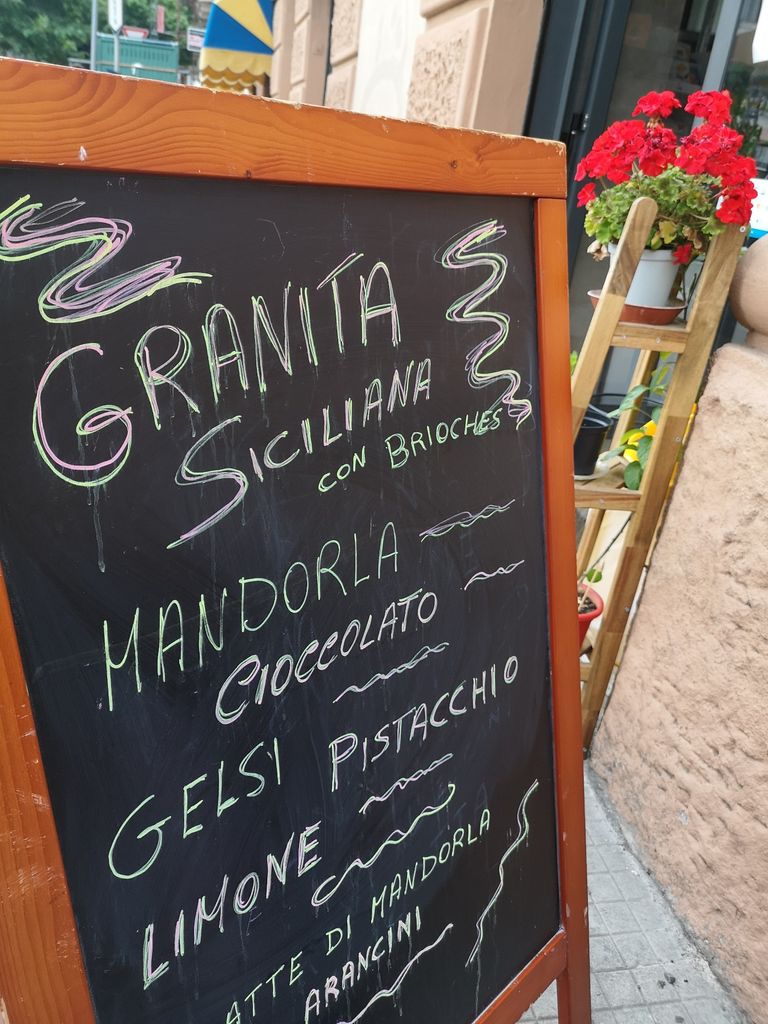 GRANITA
SICILIANA
CON BRIOCHES
MANDORLA
CIOCCOLATO
GELSI PISTACCHIO
LIMONE
ATTE DI MANDORLA
ARANCINI